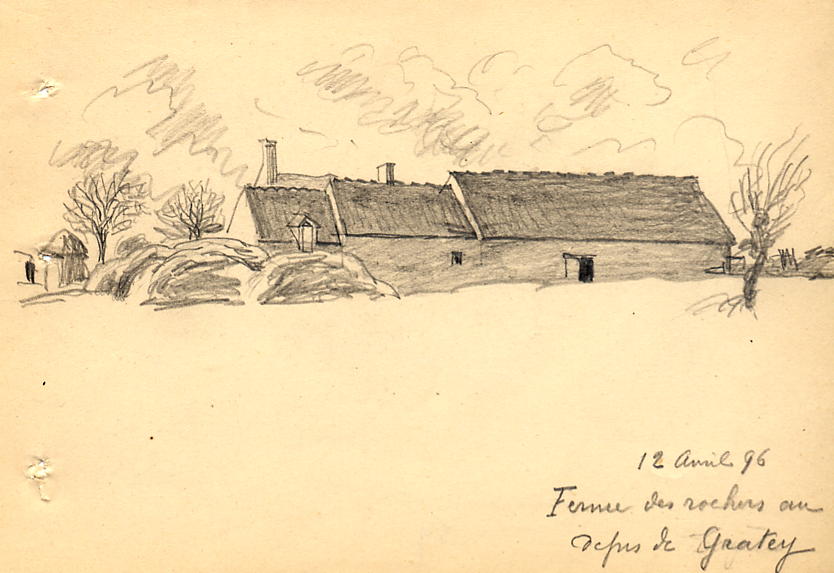 12 Avril 96
Ferme des rochers au
de Gratey